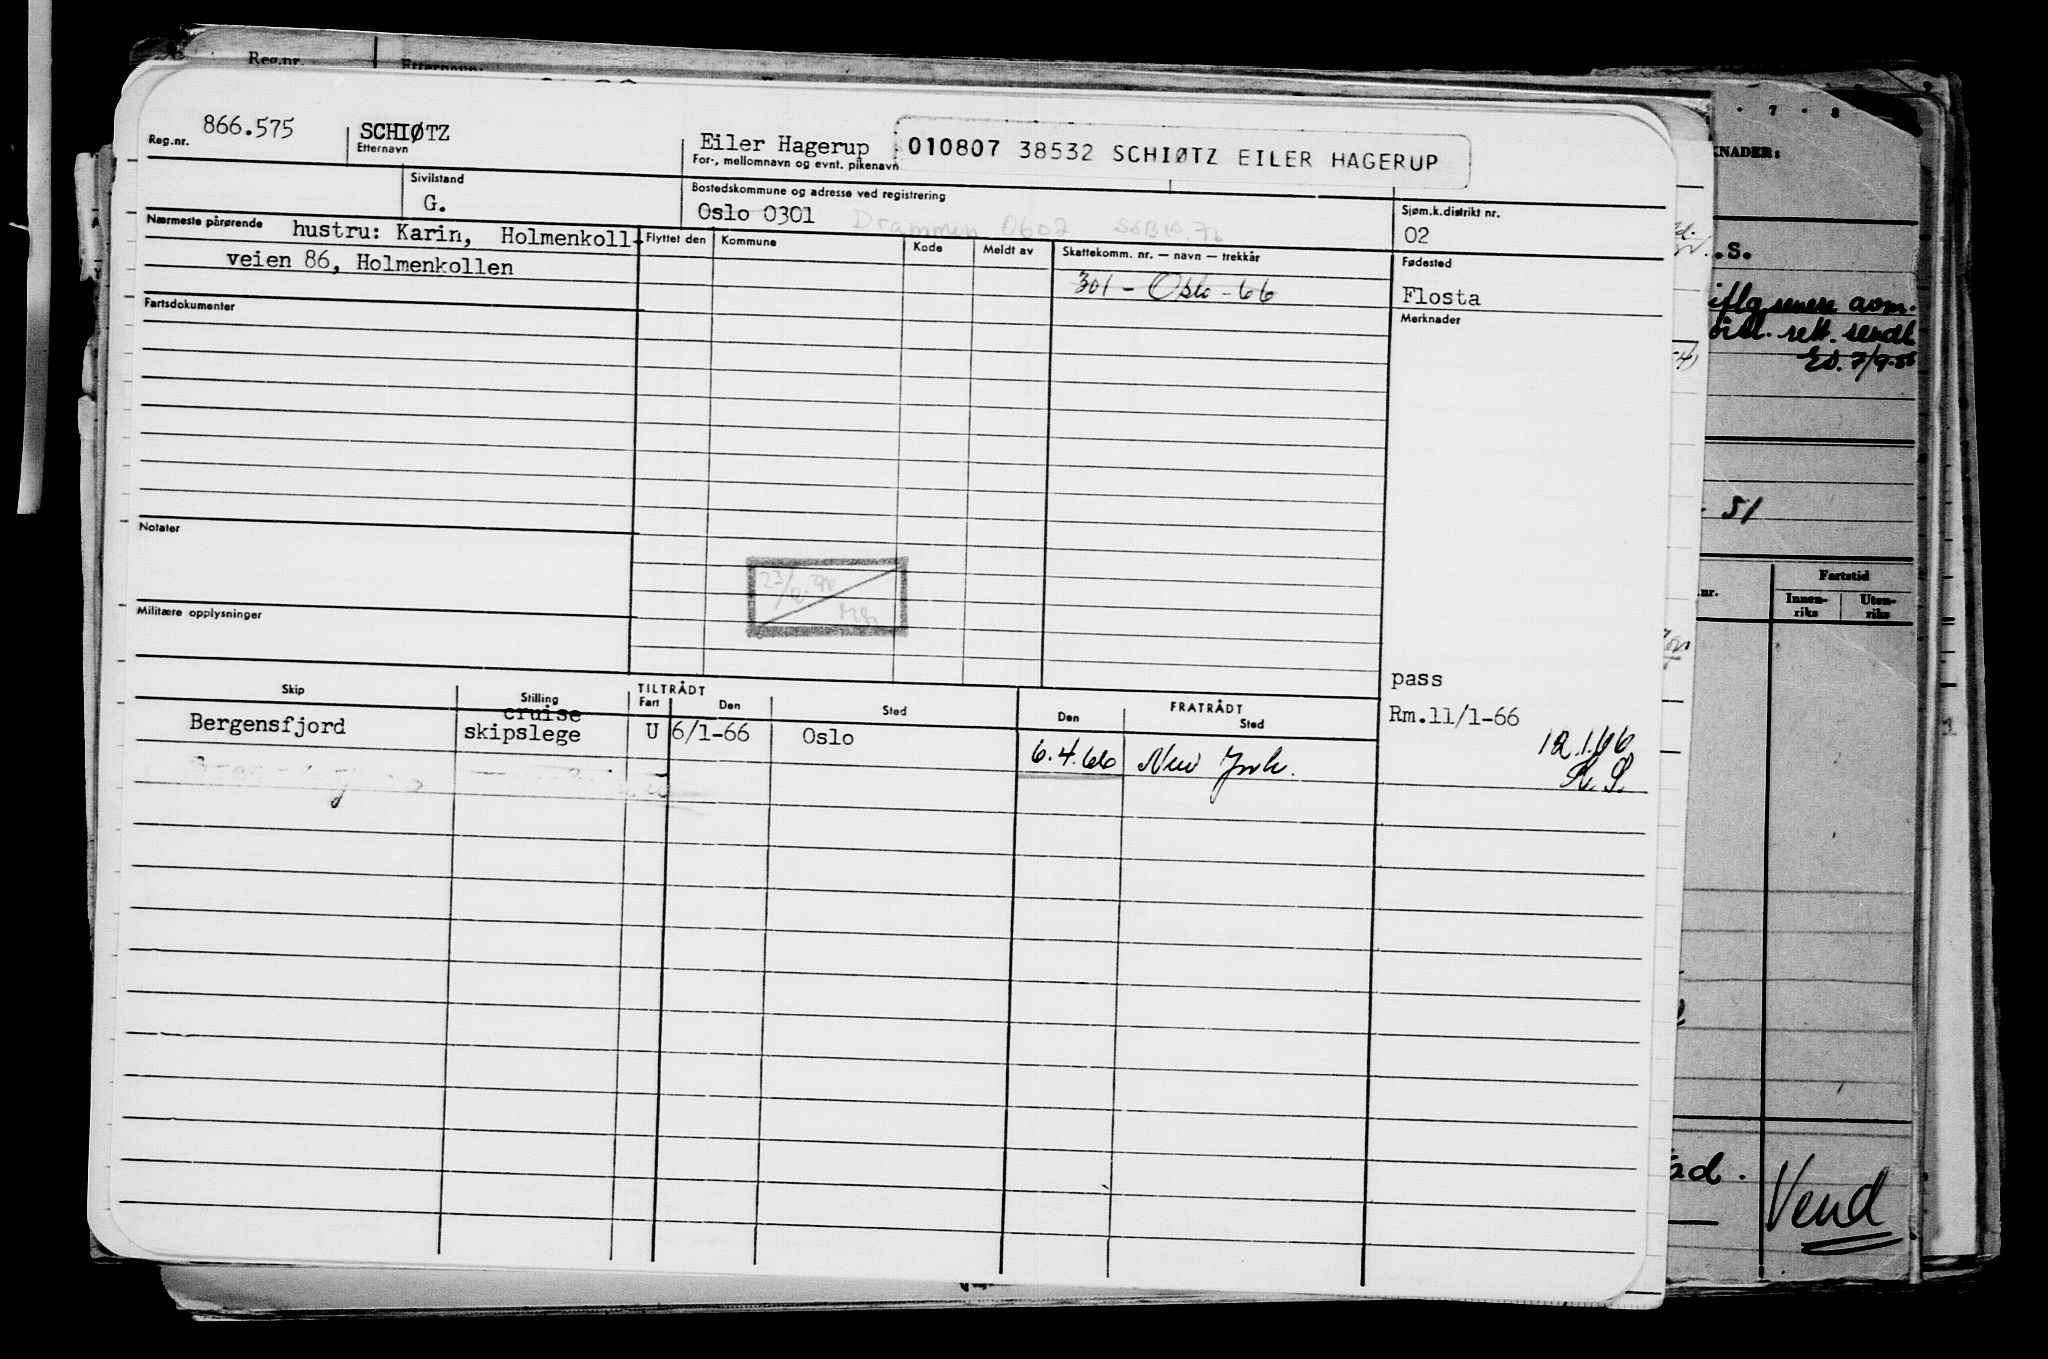 Reg.nr.
866.575
SCHIØTZ
Etternavn
Eiler Hagerup
For-, mellomnavn og evnt. pikenavn
010807 38532 SCHIØTZ EILER HAGERUP
Sivilstand
G.
Bostedskommune og adresse ved registrering
Oslo 0301 Drammen 0602
Sjøm.k.distrikt nr.
02
Nærmeste pårørende
hustru: Karin, Holmenkoll-
veien 86, Holmenkollen
Flyttet den
Kommune
Kode
Meldt av
Skattekomm. nr. — navn — trekkår
301 - Oslo - 66
Fødested
Flosta
Fartsdokumenter
Merknader
Notater
Militære opplysninger
pass
Rm.11/1-66
12.1.66
Skip
Stilling
TILTRÅDT
Fart
Den
Sted
FRATRÅDT
Den
Sted
Bergensfjord
cruise
skipslege
U
6/1-66
Oslo
6.4.66
New York.
Reg.nr.
Etternavn:
7 . 8
KNADER:
.S.
iflg senere avm.
rett. sendt
Ed. 7/9-56
51
.nr.
Fartstid
Innen-
riks
Uten-
riks
Vend